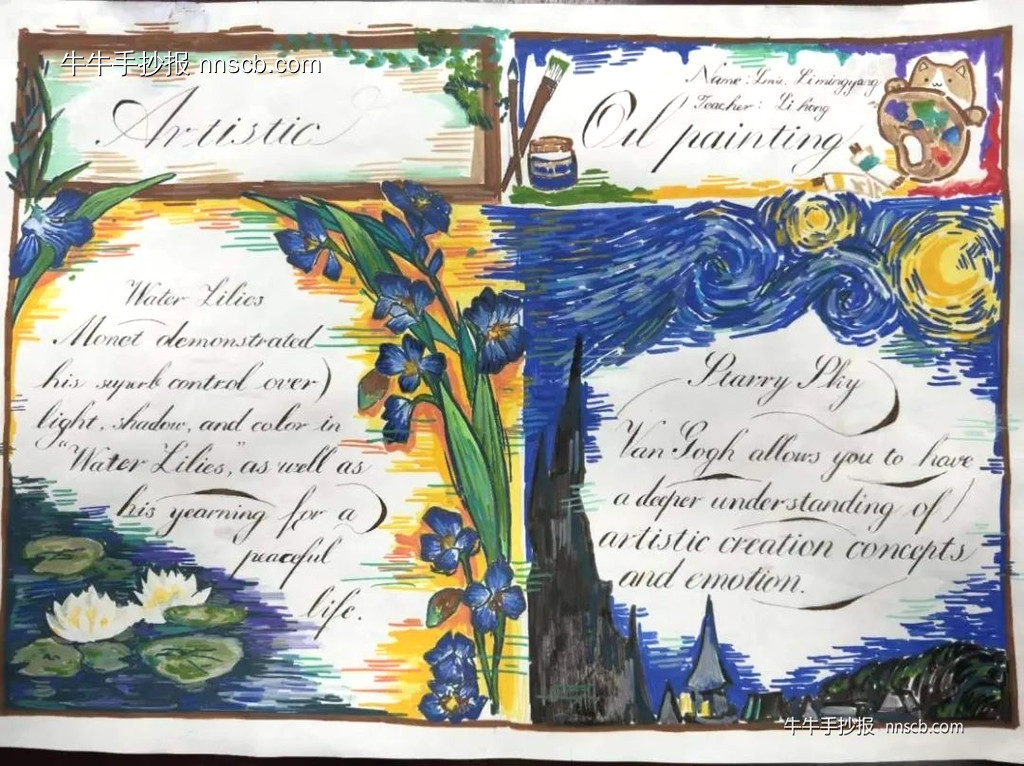 牛牛手抄报 nnscb.com
Artistic
Name: Limingyang
Teacher: Li hong
Oil painting
Water Lilies
Monet demonstrated
his superb control over
light, shadow, and color in
"Water Lilies," as well as
his yearning for a
peaceful
life.
Starry Sky
Van Gogh allows you to have
a deeper understanding of
artistic creation concepts
and emotion.
牛牛手抄报 nnscb.com